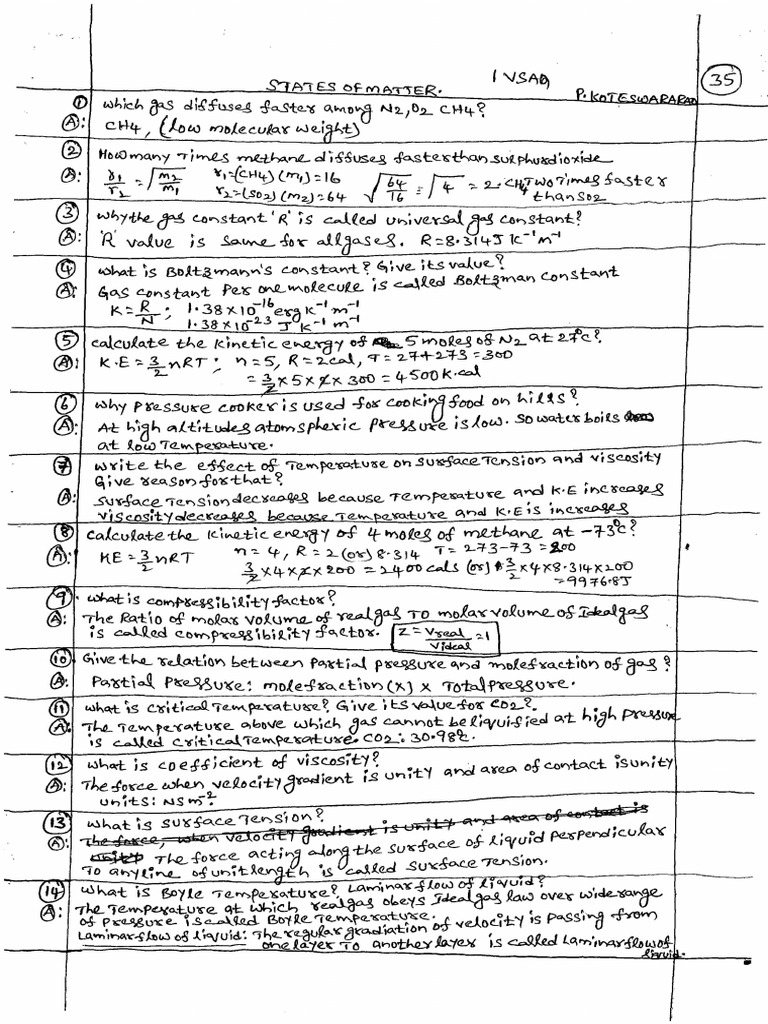 STATES OF MATTER.
1 VSAQ
P. KOTESWARARAO
35
① which gas diffuses faster among N2, O2 CH4?
A: CH4, (Low molecular weight)
② How many Times methane diffuses faster than sulphurdioxide
A: r1/r2 = √m2/m1 r1=(CH4)(m1)=16 r2=(SO2)(m2)=64 √64/16 = √4 = 2. CH4 Two Times faster than SO2
③ why the gas constant 'R' is called universal gas constant?
A: 'R' value is same for all gases. R=8.314J K⁻¹m⁻¹
④ what is Boltzmann's constant? Give its value?
A: Gas constant Per one molecule is called Boltzman constant
K = R/N ; 1.38X10⁻¹⁶ erg K⁻¹ m⁻¹
1.38X10⁻²³ J K⁻¹ m⁻¹
⑤ calculate the Kinetic energy of 5 moles of N2 at 27°c?
A: K.E = 3/2 nRT ; n=5, R=2cal, T=27+273=300
= 3/2 x 5 x 2 x 300 = 4500 K.cal
⑥ why Pressure cooker is used for cooking food on hills?
A: At high altitudes atomspheric Pressure is low. so water boils
at low Temperature.
⑦ write the effect of Temperature on surface Tension and viscosity
Give reason for that?
A: surface Tension decreases because Temperature and K.E increases
viscosity decreases because Temperature and K.E is increases
⑧ calculate the kinetic energy of 4 moles of methane at -73°c?
A: KE = 3/2 nRT n=4, R=2 (or) 8.314 T=273-73=200
3/2 x 4 x 2 x 200 = 2400 cals (or) 3/2 x 4 x 8.314 x 200
= 9976.8J
⑨ what is compressibility factor?
A: The Ratio of molar volume of real gas To molar volume of Ideal gas
is called compressibility factor. Z = Vreal/Videal = 1
⑩ Give the relation between Partial pressure and molefraction of gas?
A: Partial Pressure: molefraction (x) x Total pressure.
⑪ what is critical Temperature? Give its value for CO2?
A: The Temperature above which gas cannot be liquified at high pressure
is called critical Temperature. CO2: 30.98°c.
⑫ what is coefficient of viscosity?
A: The force when velocity gradient is unity and area of contact is unity
units: NSm⁻²
⑬ what is surface Tension?
The force, when velocity gradient is unity and area of contact is
A: unity The force acting along the surface of liquid perpendicular
To any line of unit length is called surface Tension.
⑭ what is Boyle Temperature? Laminar flow of liquid?
A: The Temperature at which real gas obeys Ideal gas law over wide range
of Pressure is called Boyle Temperature.
Laminar flow of liquid: The regular gradiation of velocity is passing from
one layer To another layer is called Laminar flow of
liquid.